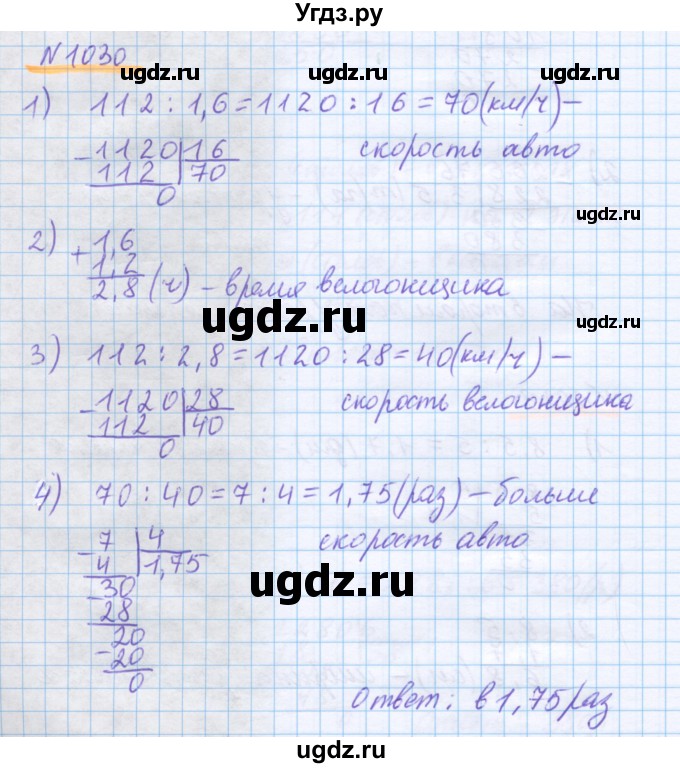 Угдз.ру
N 1030
ugdz.ru ugdz.ru
1) 112 : 1,6 = 1120 : 16 = 70 (км/ч) –
скорость авто
1120 | 16
– 112 | 70
0
ugdz.ru ugdz.ru
2) + 1,6
1,2
2,8 (ч) – время велогонщика
ugdz.ru
ugdz.ru
3) 112 : 2,8 = 1120 : 28 = 40 (км/ч) –
скорость велогонщика
– 1120 | 28
112 | 40
0
ugdz.ru ugdz.ru
4) 70 : 40 = 7 : 4 = 1,75 (раз) – больше
скорость авто
– 7 | 4
4 | 1,75
– 30
28
– 20
20
0
ugdz.ru
ugdz.ru
Ответ: в 1,75 раз
ugdz.ru ugdz.ru